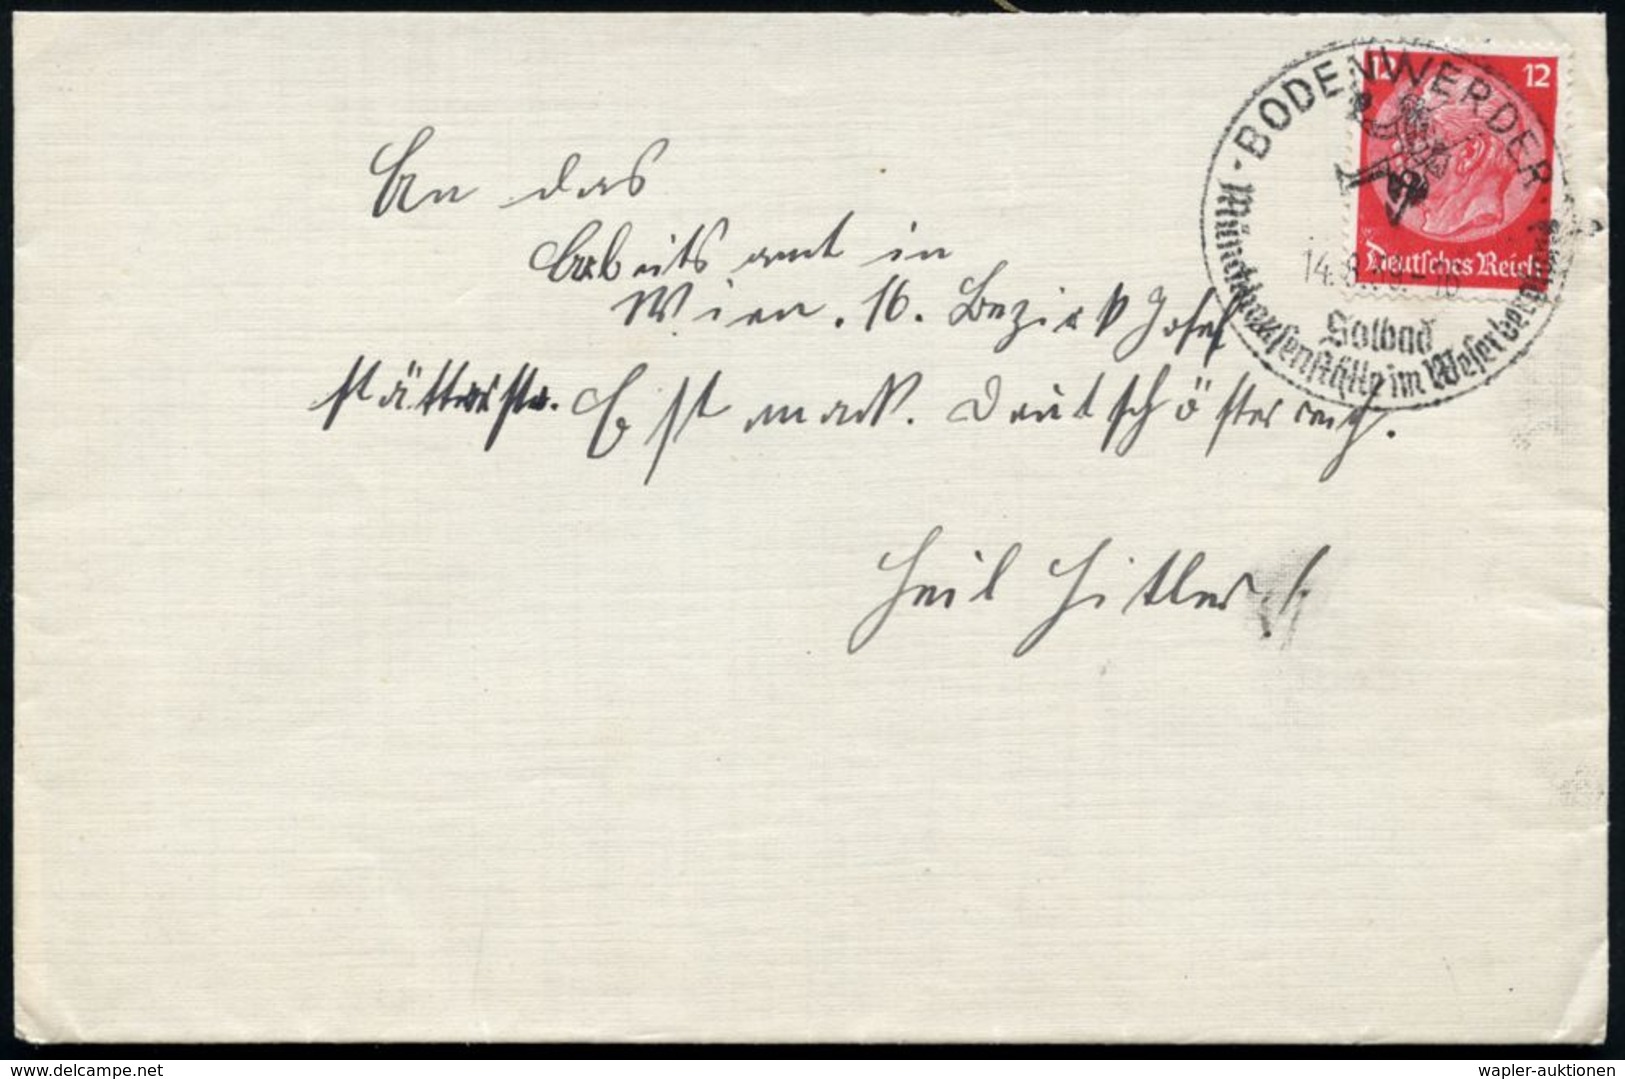 BODENWERDER
12 12
Deutsches Reich
14.8.
Solbad
Münchhausenstätte im Weserbergland
An das
Arbeitsamt in
Wien. 16. Bezirk Josef
stätterstr. Ostmark. Deutschösterreich.
Heil Hitler!
www.delcampe.net
wapler-auktionen